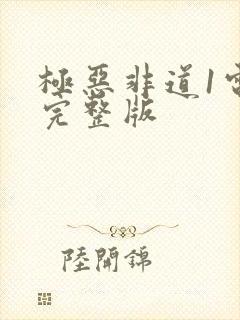 極惡非道1
完整版
陸開錦